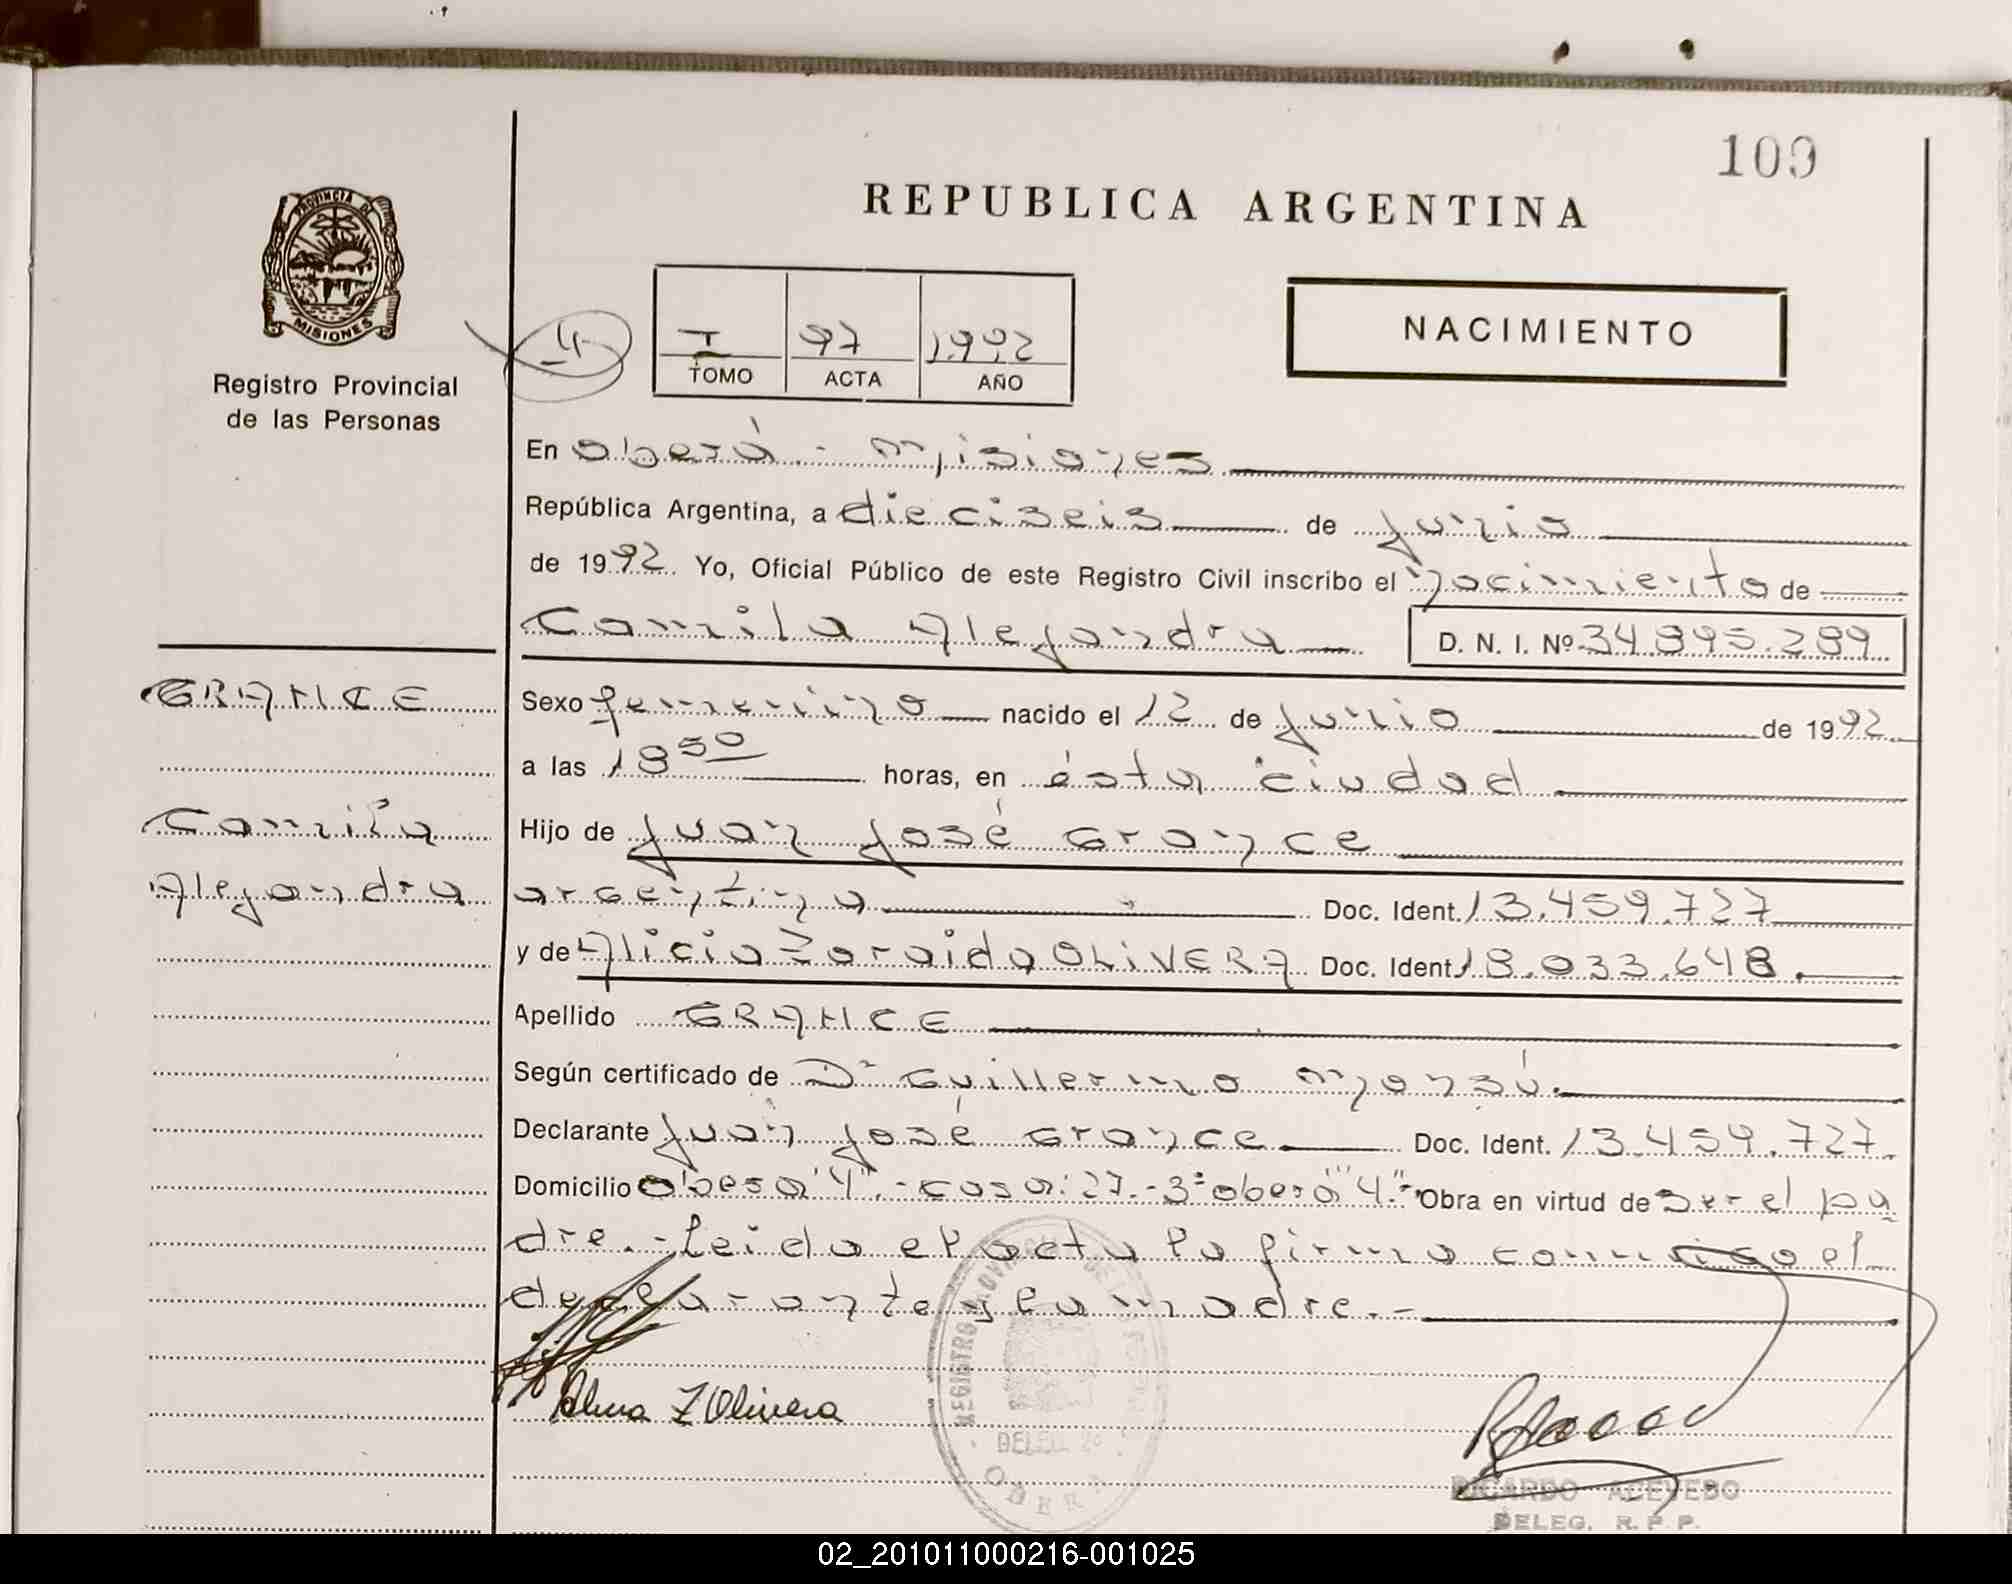 109
REPUBLICA ARGENTINA
PROVINCIA DE
MISIONES
Registro Provincial
de las Personas
I 97 1992
TOMO ACTA AÑO
NACIMIENTO
En Oberá.- Misiones
República Argentina, a dieciseis de junio
de 1992. Yo, Oficial Público de este Registro Civil inscribo el nacimiento de
Camila Alejandra D. N. I. Nº 34.895.289
GRANCE
Camila
Alejandra
Sexo femenino nacido el 12 de junio de 1992
a las 18 50 horas, en ésta ciudad
Hijo de Juan José Grance
argentina Doc. Ident. 13.459.727
y de Alicia Zoraida OLIVERA Doc. Ident 18.033.648.
Apellido GRANCE
Según certificado de Dr Guillermo Monzú.
Declarante Juan José Grance Doc. Ident. 13.459.727.
Domicilio Oberá "4".- casa: 27.- 3º oberá "4".- Obra en virtud de ser el pa
dre.- Leida el acta la firma conmigo el
declarante y la madre.-
Z Olivera
REGISTRO PROVINCIAL DE LAS PERSONAS
DELEG. 2º
OBERA
RICARDO ACEVEDO
DELEG. R. P. P.
02_201011000216-001025